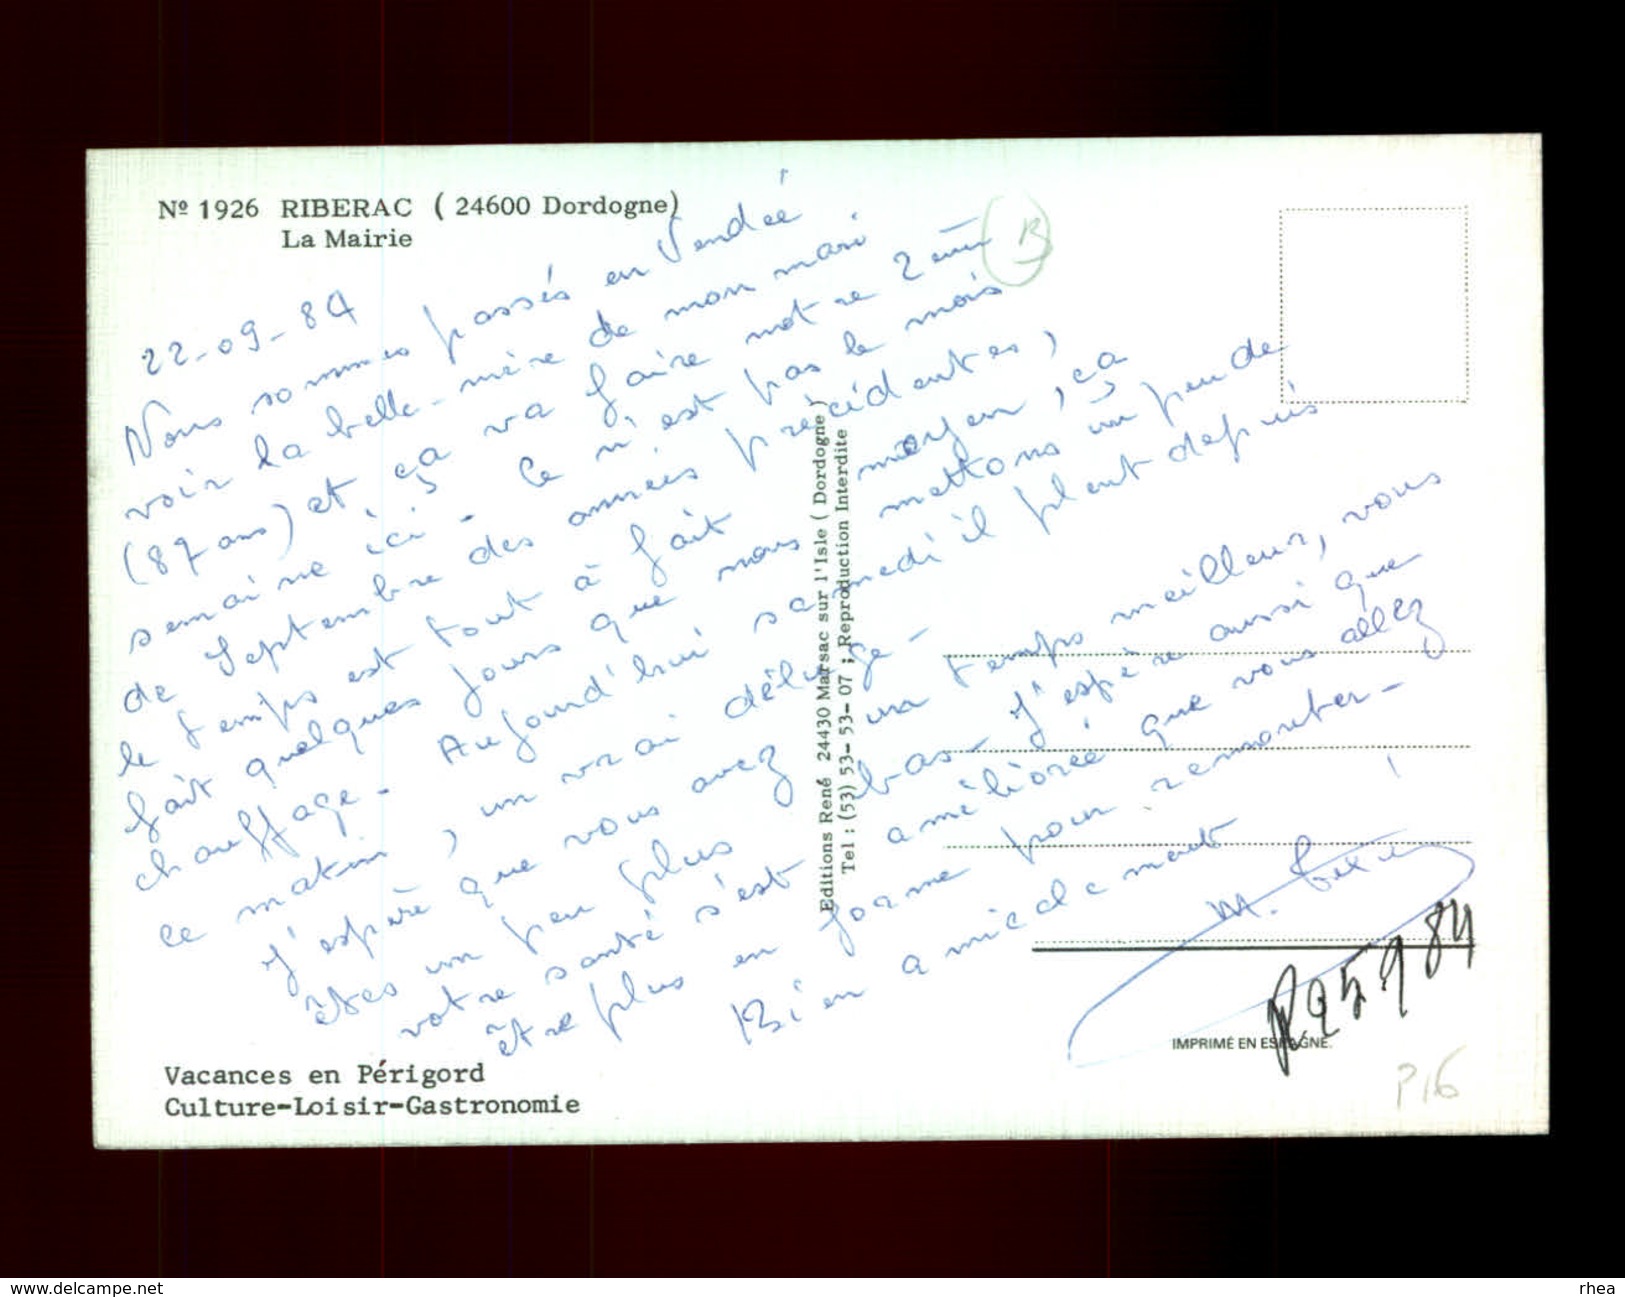 Nº 1926 RIBERAC ( 24600 Dordogne)
La Mairie
B
22-09-84
Nous sommes passés en Vendée
voir la belle-mère de mon mari
(87 ans) et ça va faire notre 2ème
semaine ici - Ce n'est pas le mois
de Septembre des années précédentes,
le temps est tout à fait moyen, ça
fait quelques jours que nous mettons un peu de
chauffage - Aujourd'hui samedi il pleut depuis
ce matin, un vrai déluge -
J'espère que vous avez un temps meilleur, vous
êtes un peu plus bas - J'espère aussi que
votre santé s'est améliorée que vous allez
être plus en forme pour remonter -
Bien amicalement !
M.
Editions René 24430 Marsac sur l'Isle ( Dordogne )
Tel : (53) 53-53-07 ; Reproduction Interdite
R 25 9 84
IMPRIMÉ EN ESPAGNE.
P16
Vacances en Périgord
Culture-Loisir-Gastronomie
www.delcampe.net
rhea